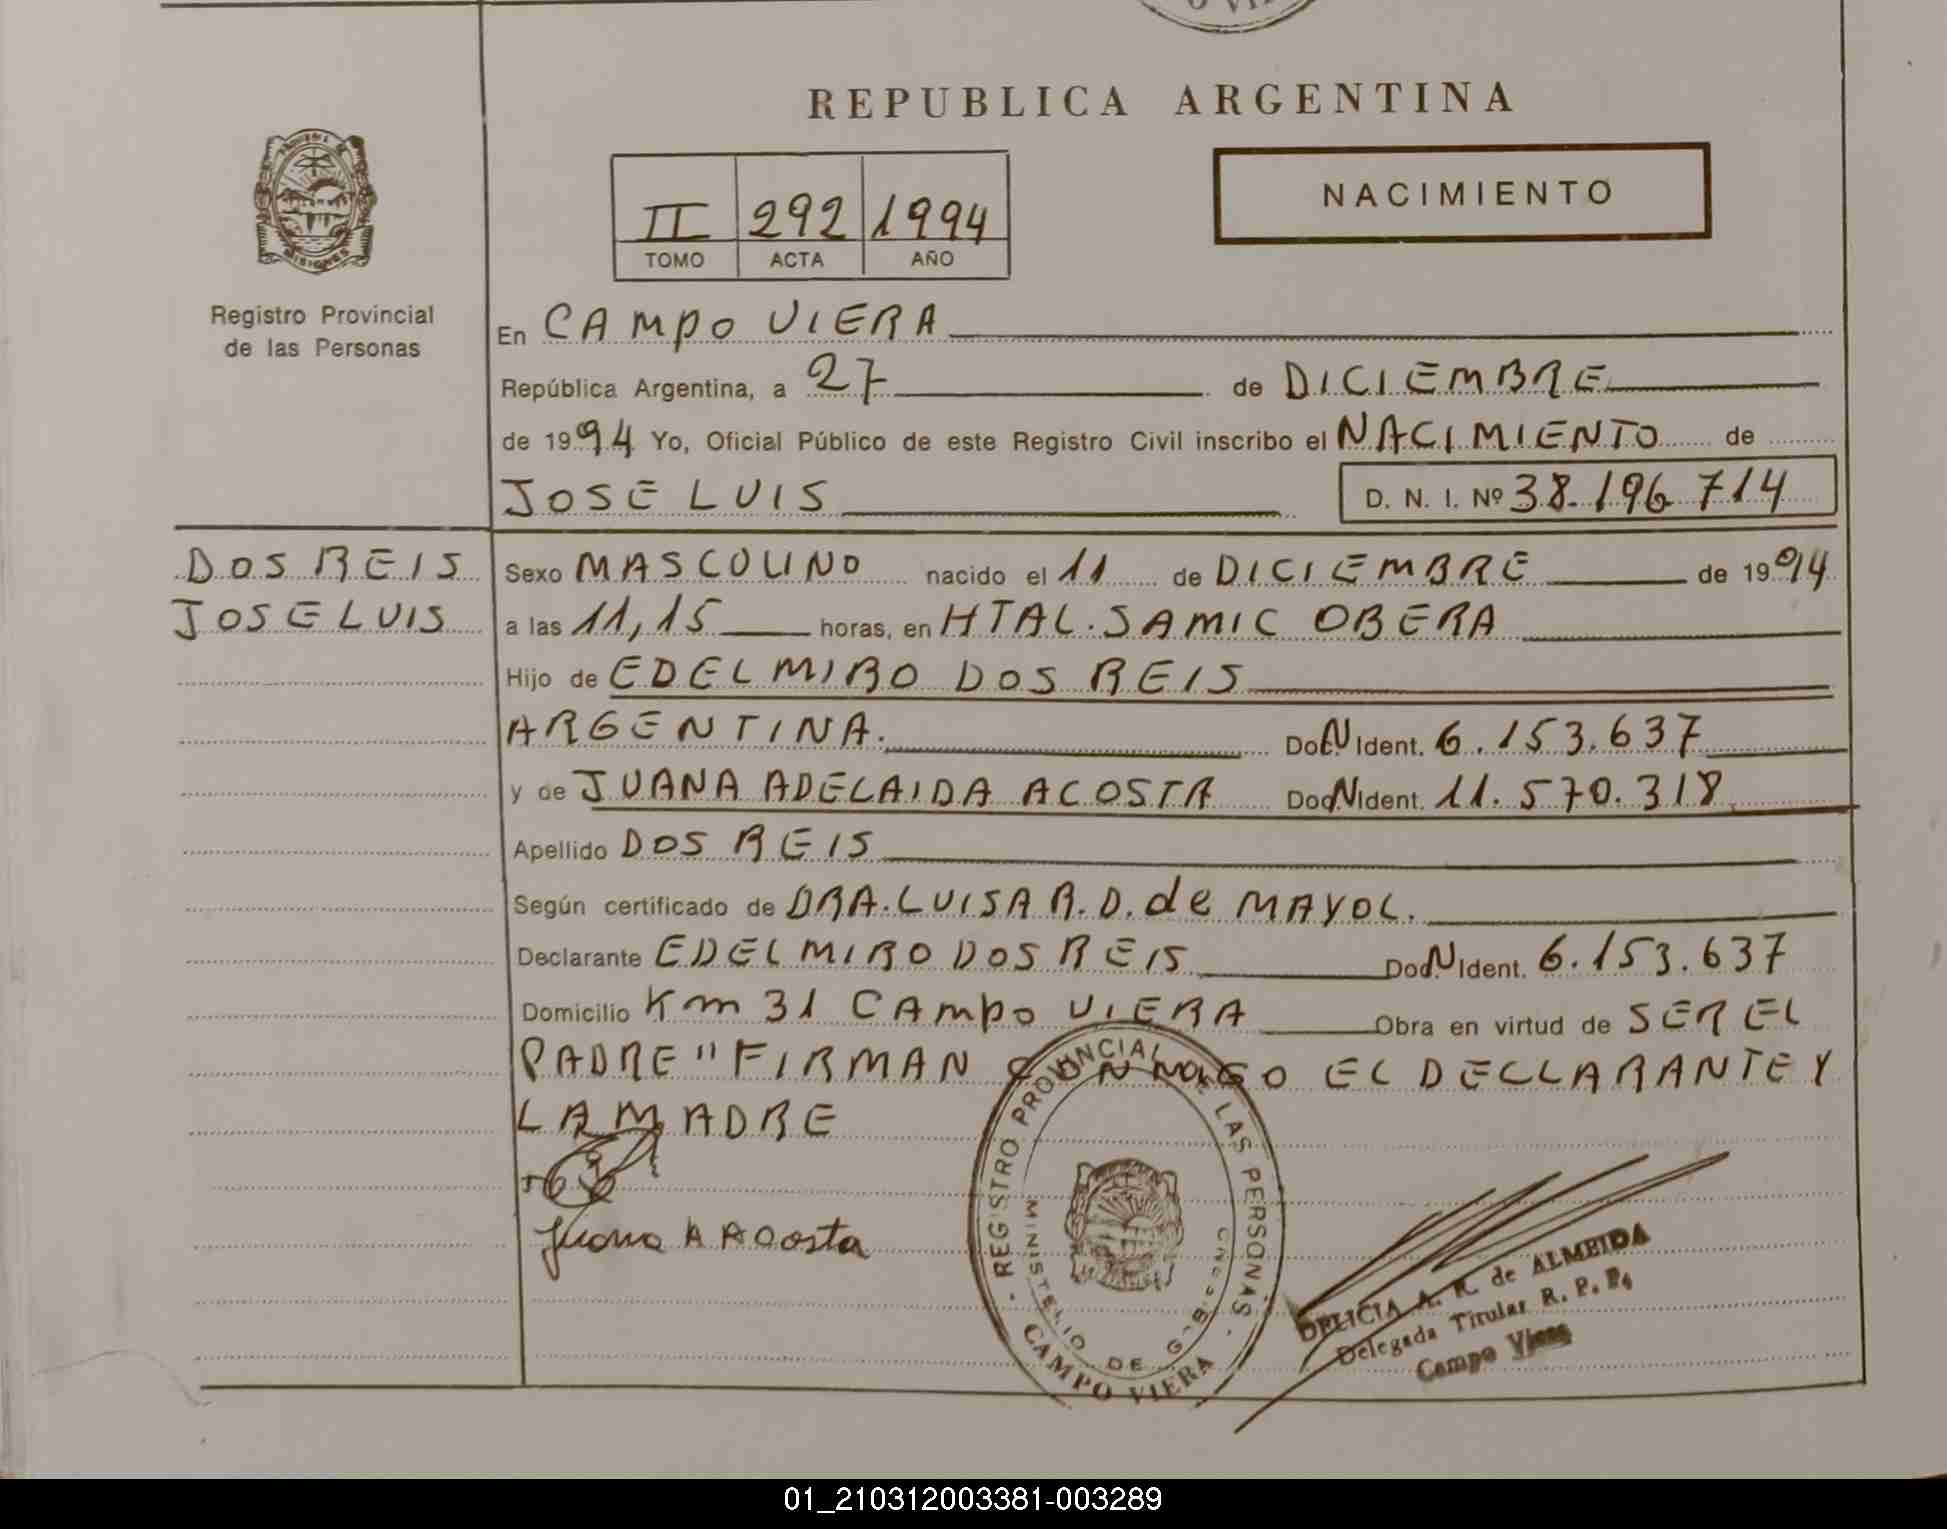 REPUBLICA ARGENTINA
NACIMIENTO
II 292 1994
TOMO ACTA AÑO
PROVINCIA DE MISIONES
Registro Provincial
de las Personas
En CAMPO VIERA
República Argentina, a 27 de DICIEMBRE
de 1994 Yo, Oficial Público de este Registro Civil inscribo el NACIMIENTO de
JOSE LUIS D. N. I. Nº 38.196 714
DOS REIS
JOSE LUIS
Sexo MASCULINO nacido el 11 de DICIEMBRE de 1994
a las 11,15 horas, en HTAL. SAMIC OBERA
Hijo de EDELMIRO DOS REIS
ARGENTINA. Doc. N Ident. 6.153.637
y de JUANA ADELAIDA ACOSTA Doc N Ident. 11.570.318
Apellido DOS REIS
Según certificado de DRA. LUISA R. D. de MAYOL.
Declarante EDELMIRO DOS REIS Doc. N Ident. 6.153.637
Domicilio Km 31 CAMPO VIERA Obra en virtud de SER EL
PADRE "FIRMAN CONMIGO EL DECLARANTE Y
LA MADRE
Juana A Acosta
REGISTRO PROVINCIAL DE LAS PERSONAS
MINISTERIO DE GOB
CAMPO VIERA
DELICIA A. R. de ALMEIDA
Delegada Titular R. P. P.
Campo Viera
01_210312003381-003289